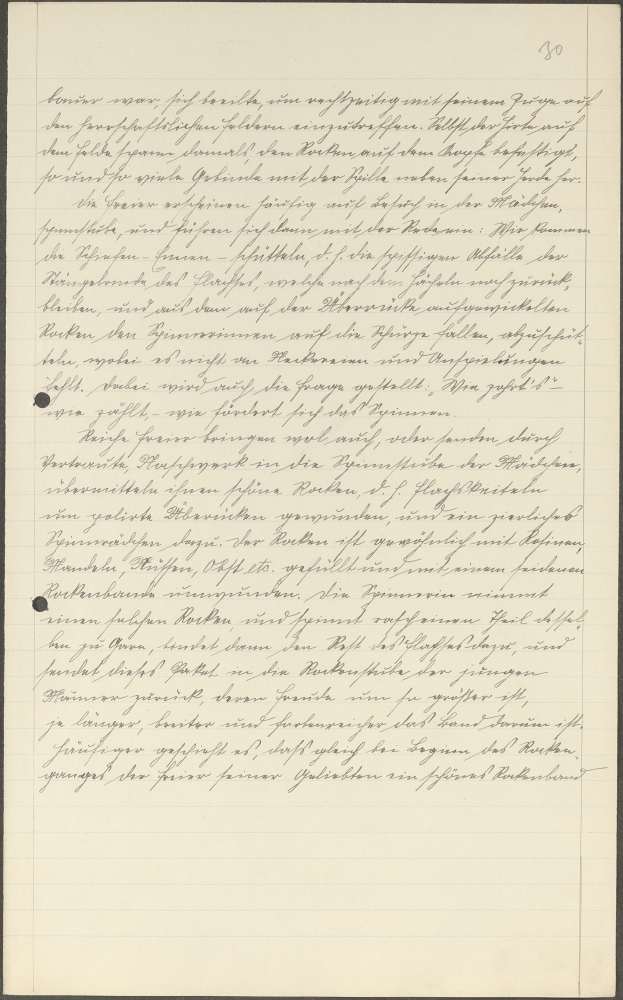 30
bauer war, sich beeilte, um rechtzeitig mit seinem Zuge auf
den herrschaftlichen Feldern einzutreffen. Selbst der Hirte auf
dem Felde spann damals, den Rocken auf dem Kopfe befestigt,
so und so viele Gebinde mit der Spille neben seiner Herde her.
Die Freier erscheinen häufig auf Besuch in der Mädchen¬
spinnstube, und führen sich dann mit der Rede ein: Wir kommen
die Schefen - Ennen - schütteln, d. h. die spissigen Abfälle der
Stängelrinde des Flachses, welche nach dem Hächeln noch zurück¬
bleiben, und aus dem auf der Überrücke aufgewickelten
Rocken den Spinnerinnen auf die Schürze fallen, abzuschüt¬
teln, wobei es nicht an Neckereien und Anspielungen
fehlt. Dabei wird auch die Frage gestellt: „Wie zahrt's" –
wie zählt, – wie fördert sich das Spinnen.
Reiche Freier bringen wol auch, oder senden durch
Vertraute, Naschwerk in die Spinnstube der Mädchen,
übermitteln ihnen schöne Rocken, d. h. Flachskniteln
um polirte Überrücken gewunden, und ein zierliches
Spinnrädchen dazu. Der Rocken ist gewöhnlich mit Rosinen,
Mandeln, Nüssen, Obst etc. gefüllt und mit einem seidenen
Rockenbande umwunden. Die Spinnerin nimmt
einen solchen Rocken, und spinnt rasch einen Theil dessel¬
ben zu Garn, bindet dann den Rest des Flachses dazu, und
sendet dieses Paket in die Rockenstube der jungen
Männer zurück, deren Freude um so größer ist,
je länger, breiter und farbenreicher das Band darum ist.
Häufiger geschieht es, dass gleich bei Beginn des Rocken¬
ganges der Freier seiner Geliebten ein schönes Rockenband